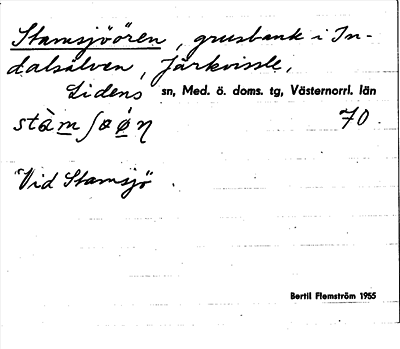 Stamsjöören, grusbank i In-
dalsälven, Järkvissle,
Lidens sn, Med. ö. doms. tg, Västernorrl. län
stàm∫ɷön 70.
"Vid Stamsjö
Bertil Flemström 1955